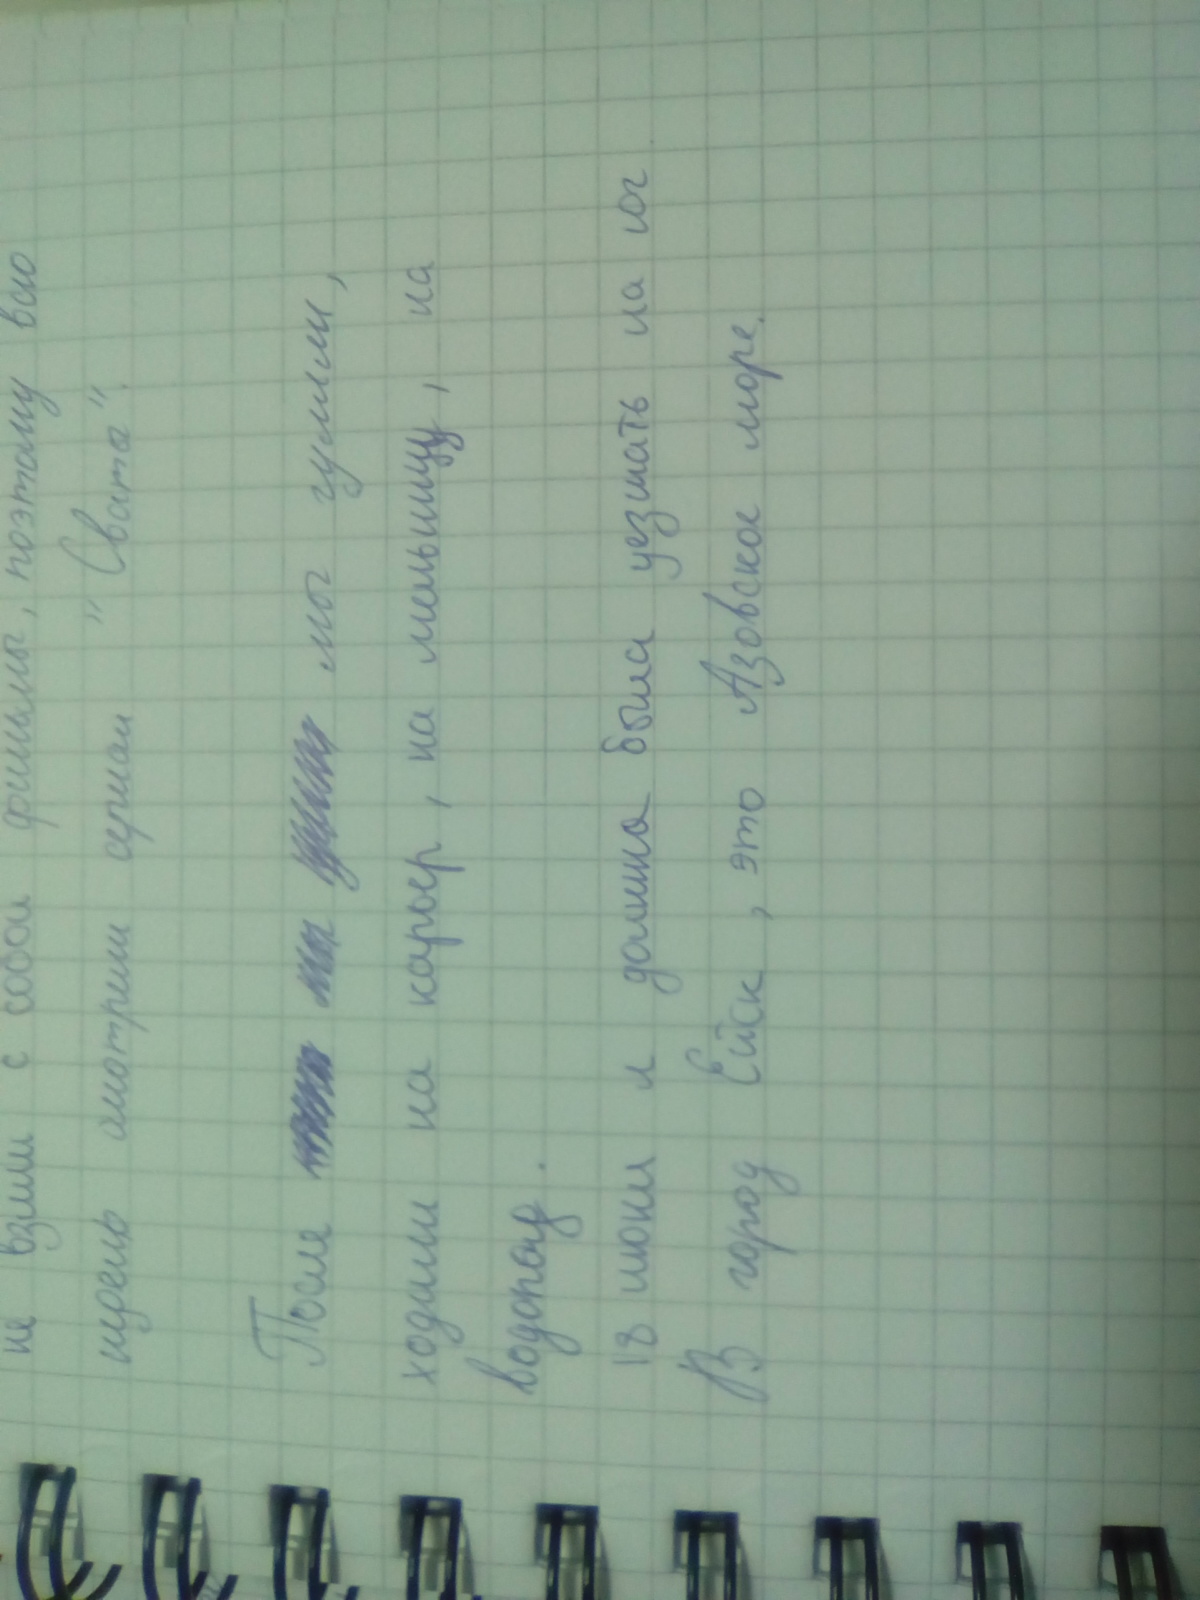 не взяли с собой фильмы, поэтому всю
неделю смотрели сериал "Сваты".
После мы гуляли,
ходили на карьер, на мельницу, на
водопад.
18 июня я должна была уезжать на юг
В город Ейск, это Азовское море.